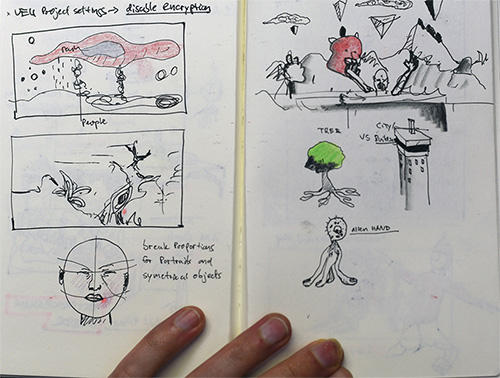 UE4 Project settings → disable encryption
People
break Proportions
for Portraits and
symetrical objects
TREE
CITY/
VS
Alien HAND